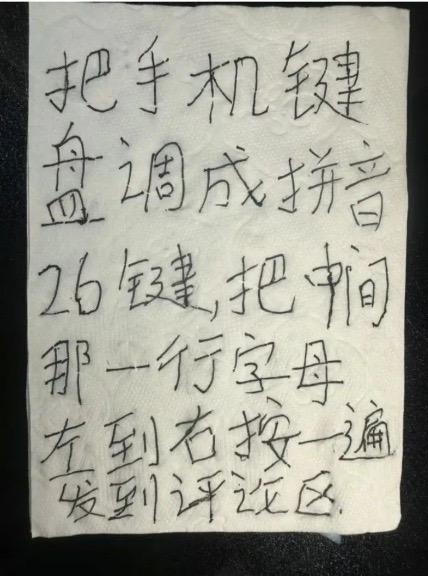 把手机键
盘调成拼音
26键,把中间
那一行字母
左到右按一遍
发到评论区.